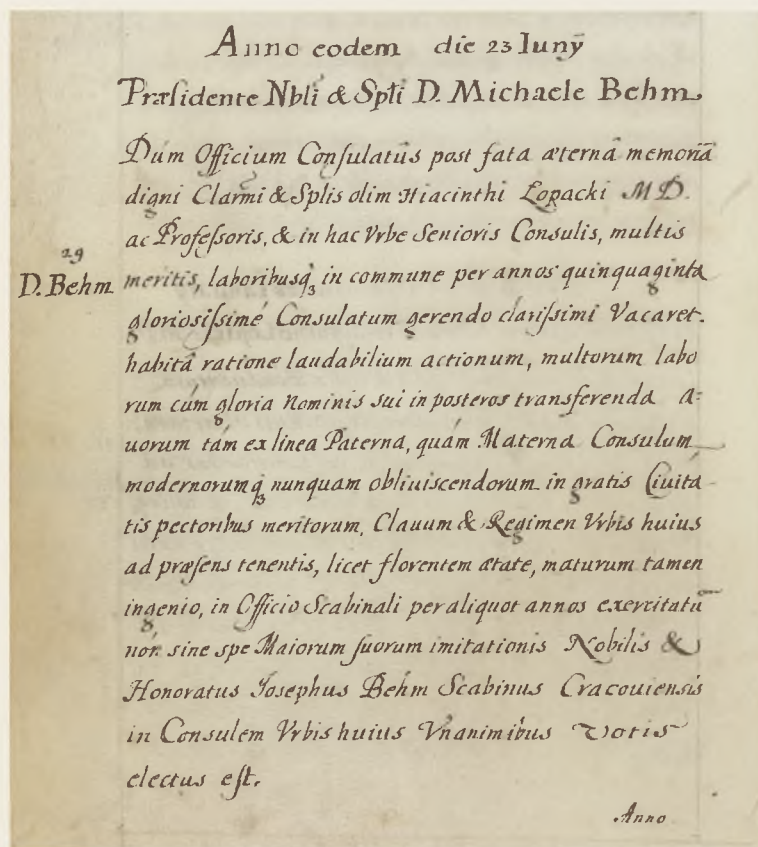 Anno eodem die 23 Iunÿ
Præsidente Nbli & Spli D. Michaele Behm.
Dum Officium Consulatûs post fata æternâ memoriâ
digni Clarmi & Splis olim Hiacinthi Łopacki M D.
ac Professoris, & in hac Vrbe Senioris Consulis, multis
29
D. Behm
meritis, laboribusq₃ in commune per annos quinquaginta
gloriosissimé Consulatum gerendo clarissimi Vacaret.
habitâ ratione laudabilium actionum, multorum labo
rum cúm gloria Nominis sui in posteros transferenda A=
uorum tám ex linea Paterna, quám Materna Consulum
modernorumq₃ nunquam obliuiscendorum in gratis Ciuita
tis pectoribus meritorum, Clauum & Regimen Vrbis huius
ad præsens tenentis, licet florentem ætate, maturum tamen
ingenio, in Officio Scabinali per aliquot annos exercitatū
nón sine spe Maiorum suorum imitationis Nobilis &
Honoratus Josephus Behm Scabinus Cracouiensis
in Consulem Vrbis huius Vnanimibus Votis
electus est.
Anno